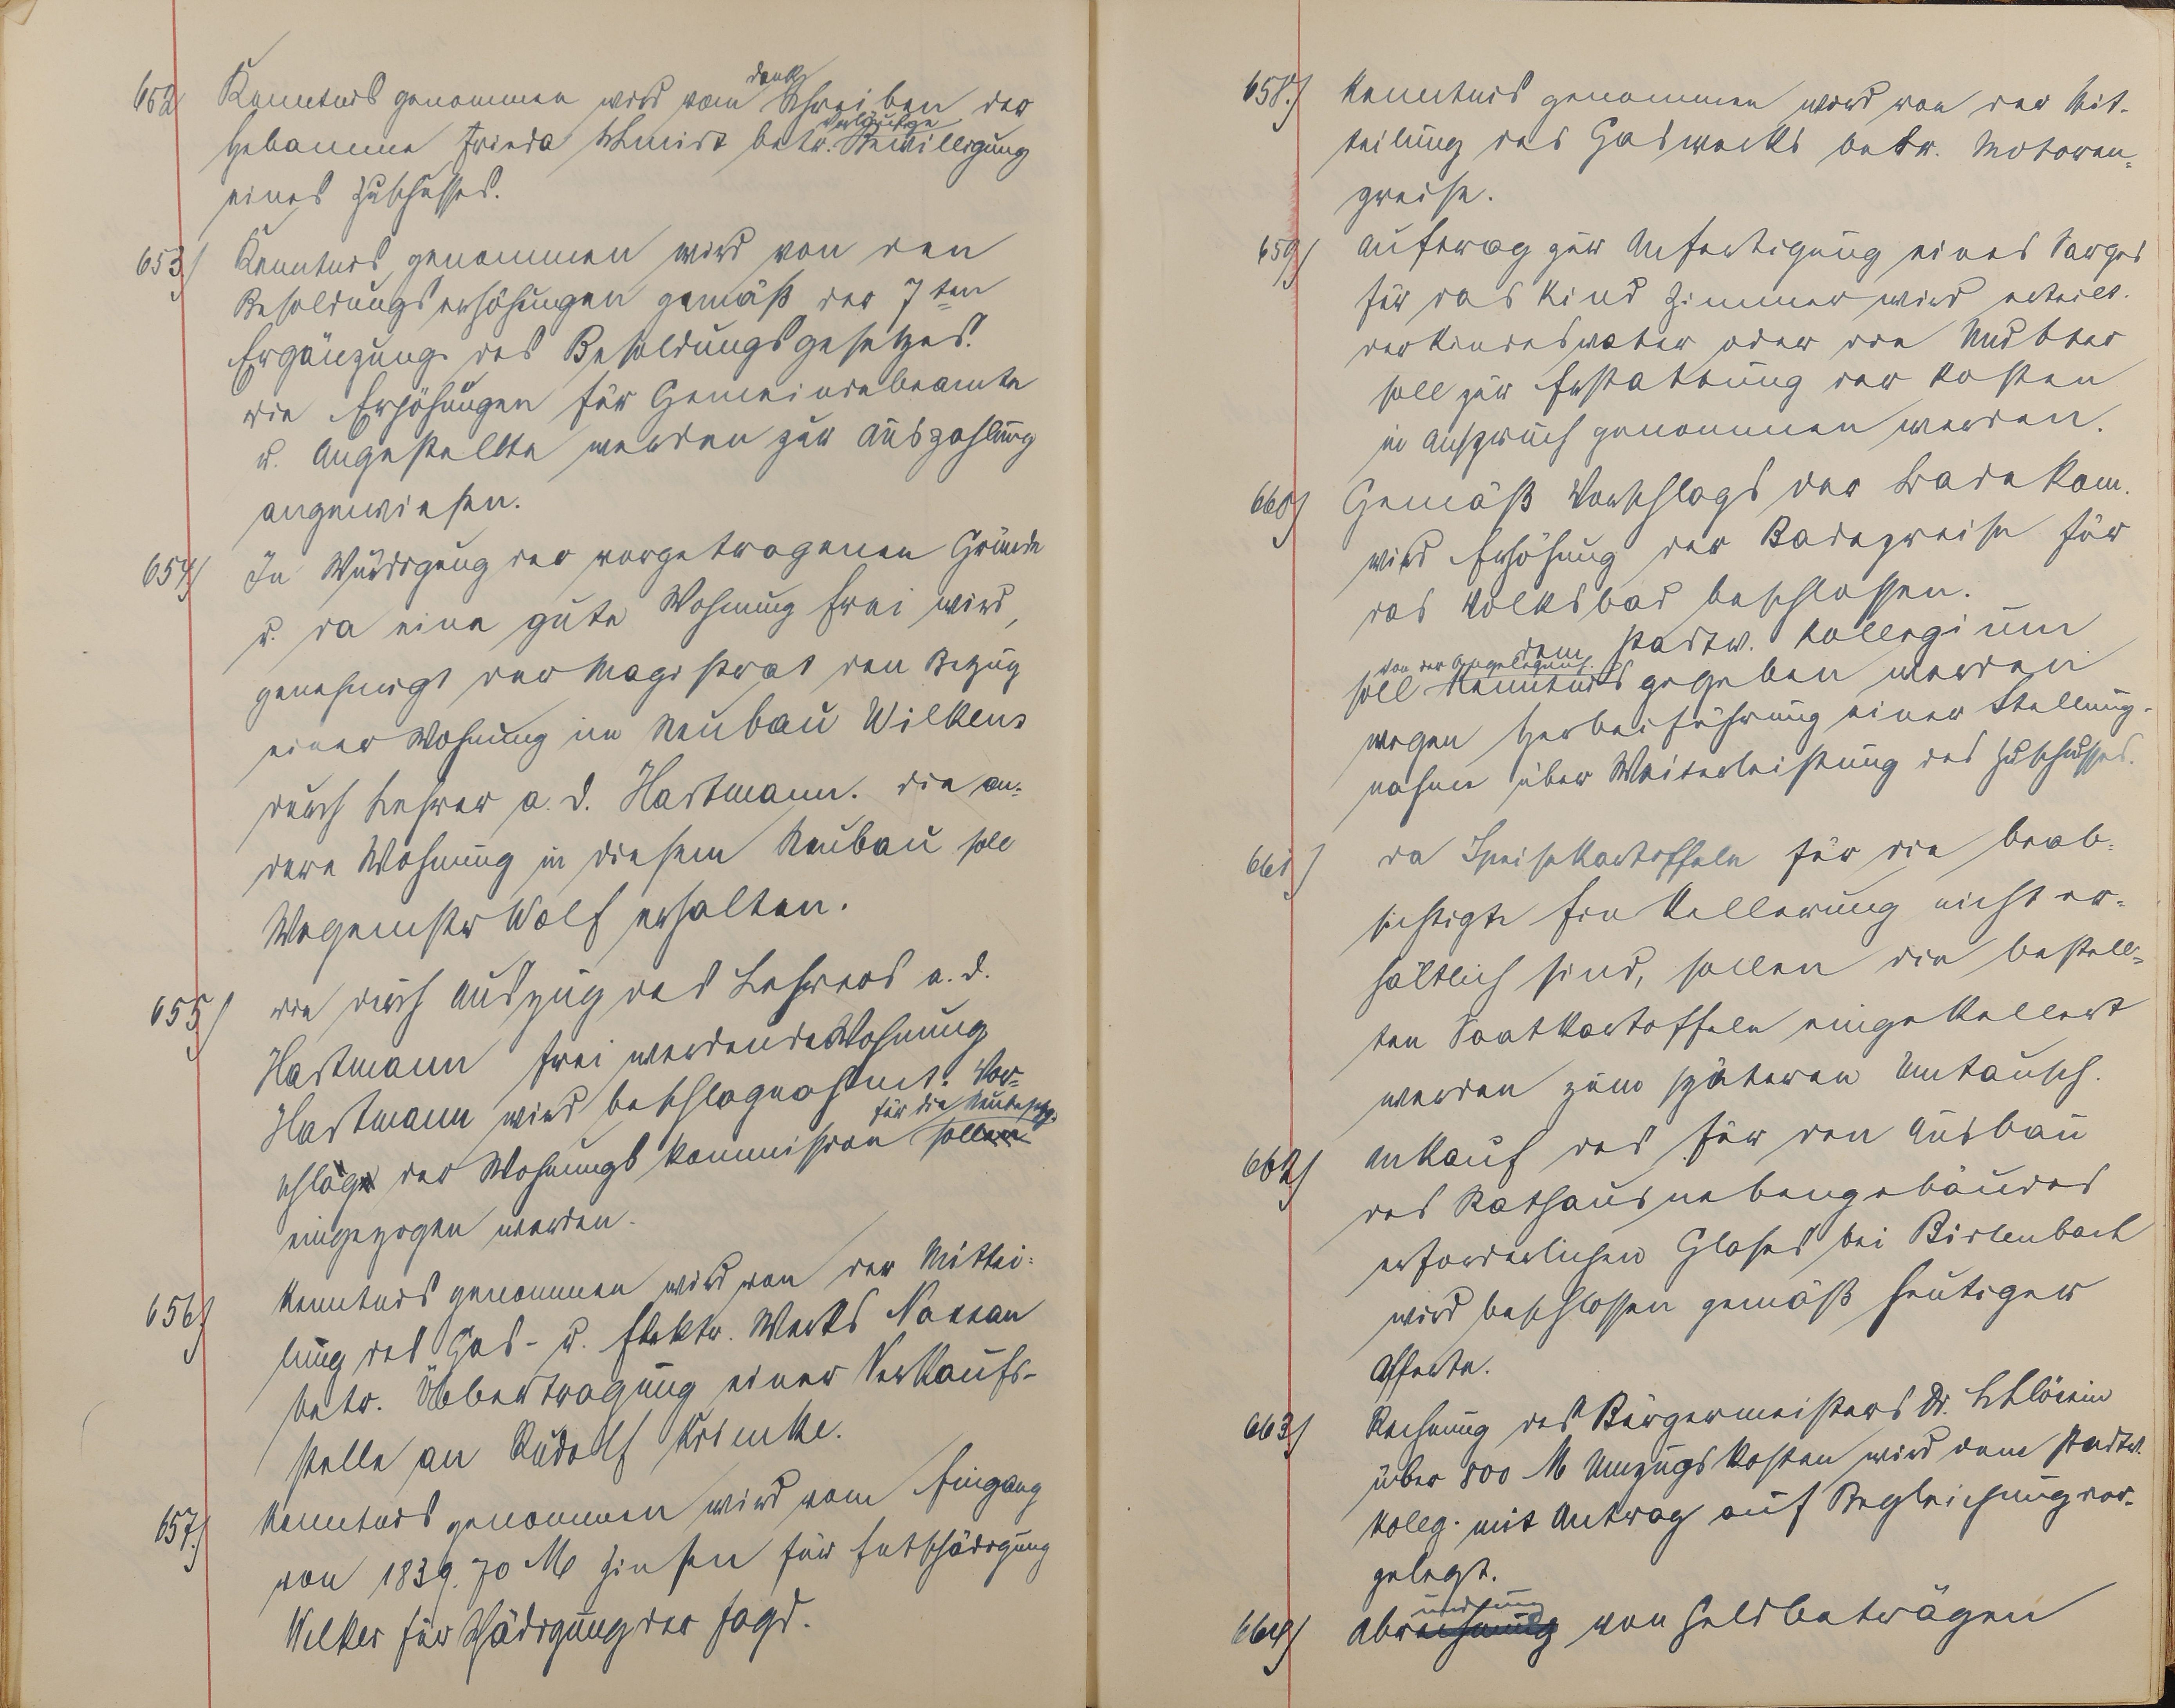 652 Kenntnis genommen wird vom Dank Schreiben der
Hebamme Frieda Schmidt betr. vorläufige Bewilligung
eines Zuschusses.
653) Kenntnis genommen wird von den
Besoldungserhöhungen gemäß der 7ten
Ergänzung des Besoldungsgesetzes.
die Erhöhungen für Gemeindebeamte
u. Angestellte werden zur Auszahlung
angewiesen.
654) In Würdigung der vorgetragenen Gründe
u. da eine gute Wohnung frei wird,
genehmigt der Magistrat den Bezug
einer Wohnung im Neubau Wilkens
durch Lehrer a. D. Hastmann. die an=
dere Wohnung in diesem Neubau soll
Wegemstr Wolf erhalten.
655) die durch Auszug des Lehrers a. D.
Hastmann frei werdende Wohnung
Hastmann wird beschlagnahmt. Vor=
schläge der Wohnungskommission für die Neubesetzg. sollen
eingezogen werden.
656) Kenntnis genommen wird von der Mittei=
lung des Gas- u. Elektr. Werks Nassau
betr. Übertragung einer Verkaufs-
stelle an Rudolf Krincke.
657.) Kenntnis genommen wird vom Eingang
von 1839.70 M Zinsen für Entschädigung
Welker für Schädigung der Jagd.
658.) Kenntnis genommen wird von der Mit-
teilung des Gaswerks betr. Motoren=
preise.
659) Auftrag zur Anfertigung eines Sarges
für das Kind Zimmer wird erteilt.
der Kindesvater oder die Mutter
soll zur Erstattung der Kosten
in Anspruch genommen werden.
660) Gemäß Vorschlags der Badekom.
wird Erhöhung der Badepreise für
das Volksbad beschlossen.
dem Stadtv. Kollegium
soll von der Angelegenh. Kenntnis gegeben werden
wegen Herbeiführung einer Stellung-
nahme über Weiterleistung des Zuschusses.
661) da Speisekartoffeln für die beab=
sichtigte Einkellerung nicht er=
hältlich sind, sollen die bestell=
ten Saatkartoffeln eingekellert
werden zum späteren Umtausch.
662) Ankauf des für den Ausbau
des Rathausnebengebäudes
erforderlichen Glases bei Birlenbach
wird beschlossen gemäß heutiger
Offerte.
663) Rechnung des Bürgermeisters Dr. Schlösin
über 800 M Umzugskosten wird dem Stadtv.
Kolleg. mit Antrag auf Begleichung vor-
gelegt.
664) Abrechnung undung von Geldbeträgen